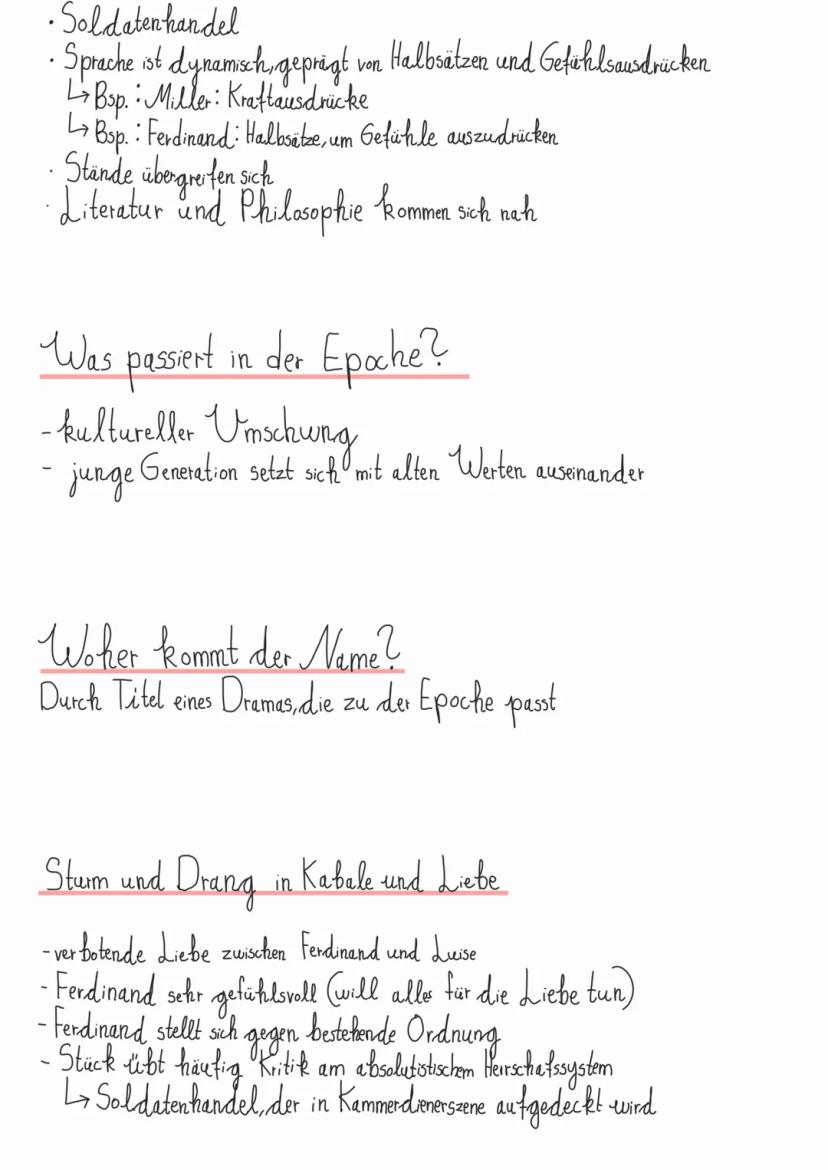 · Soldatenhandel
· Sprache ist dynamisch, geprägt von Halbsätzen und Gefühlsausdrücken
↳ Bsp.: Miller: Kraftausdrücke
↳ Bsp.: Ferdinand: Halbsätze, um Gefühle auszudrücken
· Stände übergreifen sich
· Literatur und Philosophie kommen sich nah
Was passiert in der Epoche?
- kultureller Umschwung
- junge Generation setzt sich mit alten Werten auseinander
Woher kommt der Name?
Durch Titel eines Dramas, die zu der Epoche passt
Sturm und Drang in Kabale und Liebe
- verbotende Liebe zwischen Ferdinand und Luise
- Ferdinand sehr gefühlsvoll (will alles für die Liebe tun)
- Ferdinand stellt sich gegen bestehende Ordnung
- Stück übt häufig Kritik am absolutistischem Herrschafssystem
↳ Soldatenhandel, der in Kammerdienerszene aufgedeckt wird